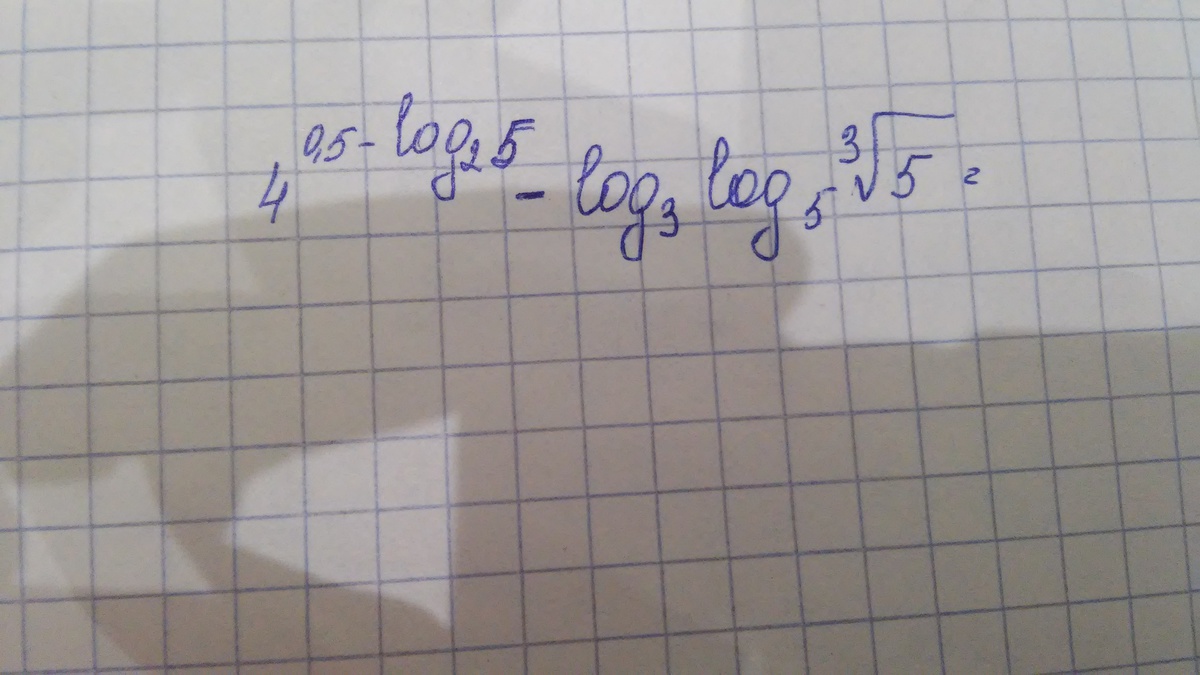 4^{0,5 - log_2 5} - log_3 log_5 ∛5 =